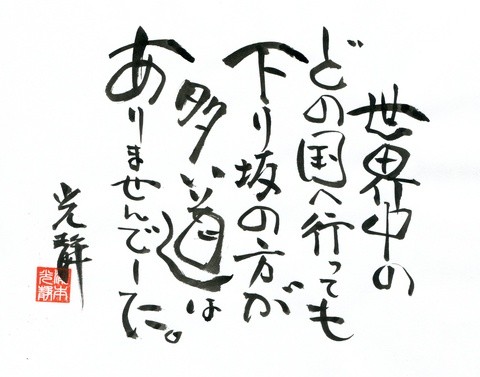 世界中の
どの国へ行っても
下り坂の方が
多い道は
ありませんでした。
光静